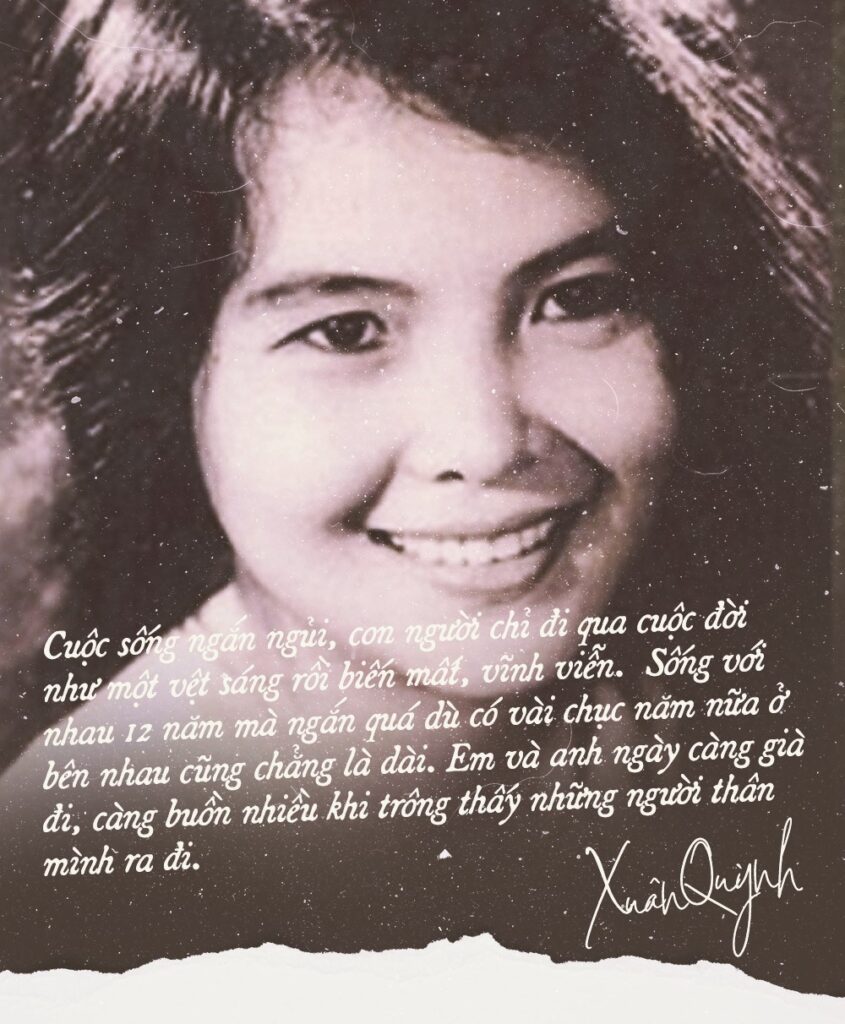 Cuộc sống ngắn ngủi, con người chỉ đi qua cuộc đời
như một vệt sáng rồi biến mất, vĩnh viễn. Sống với
nhau 12 năm mà ngắn quá dù có vài chục năm nữa ở
bên nhau cũng chẳng là dài. Em và anh ngày càng già
đi, càng buồn nhiều khi trông thấy những người thân
mình ra đi.
Xuân Quỳnh